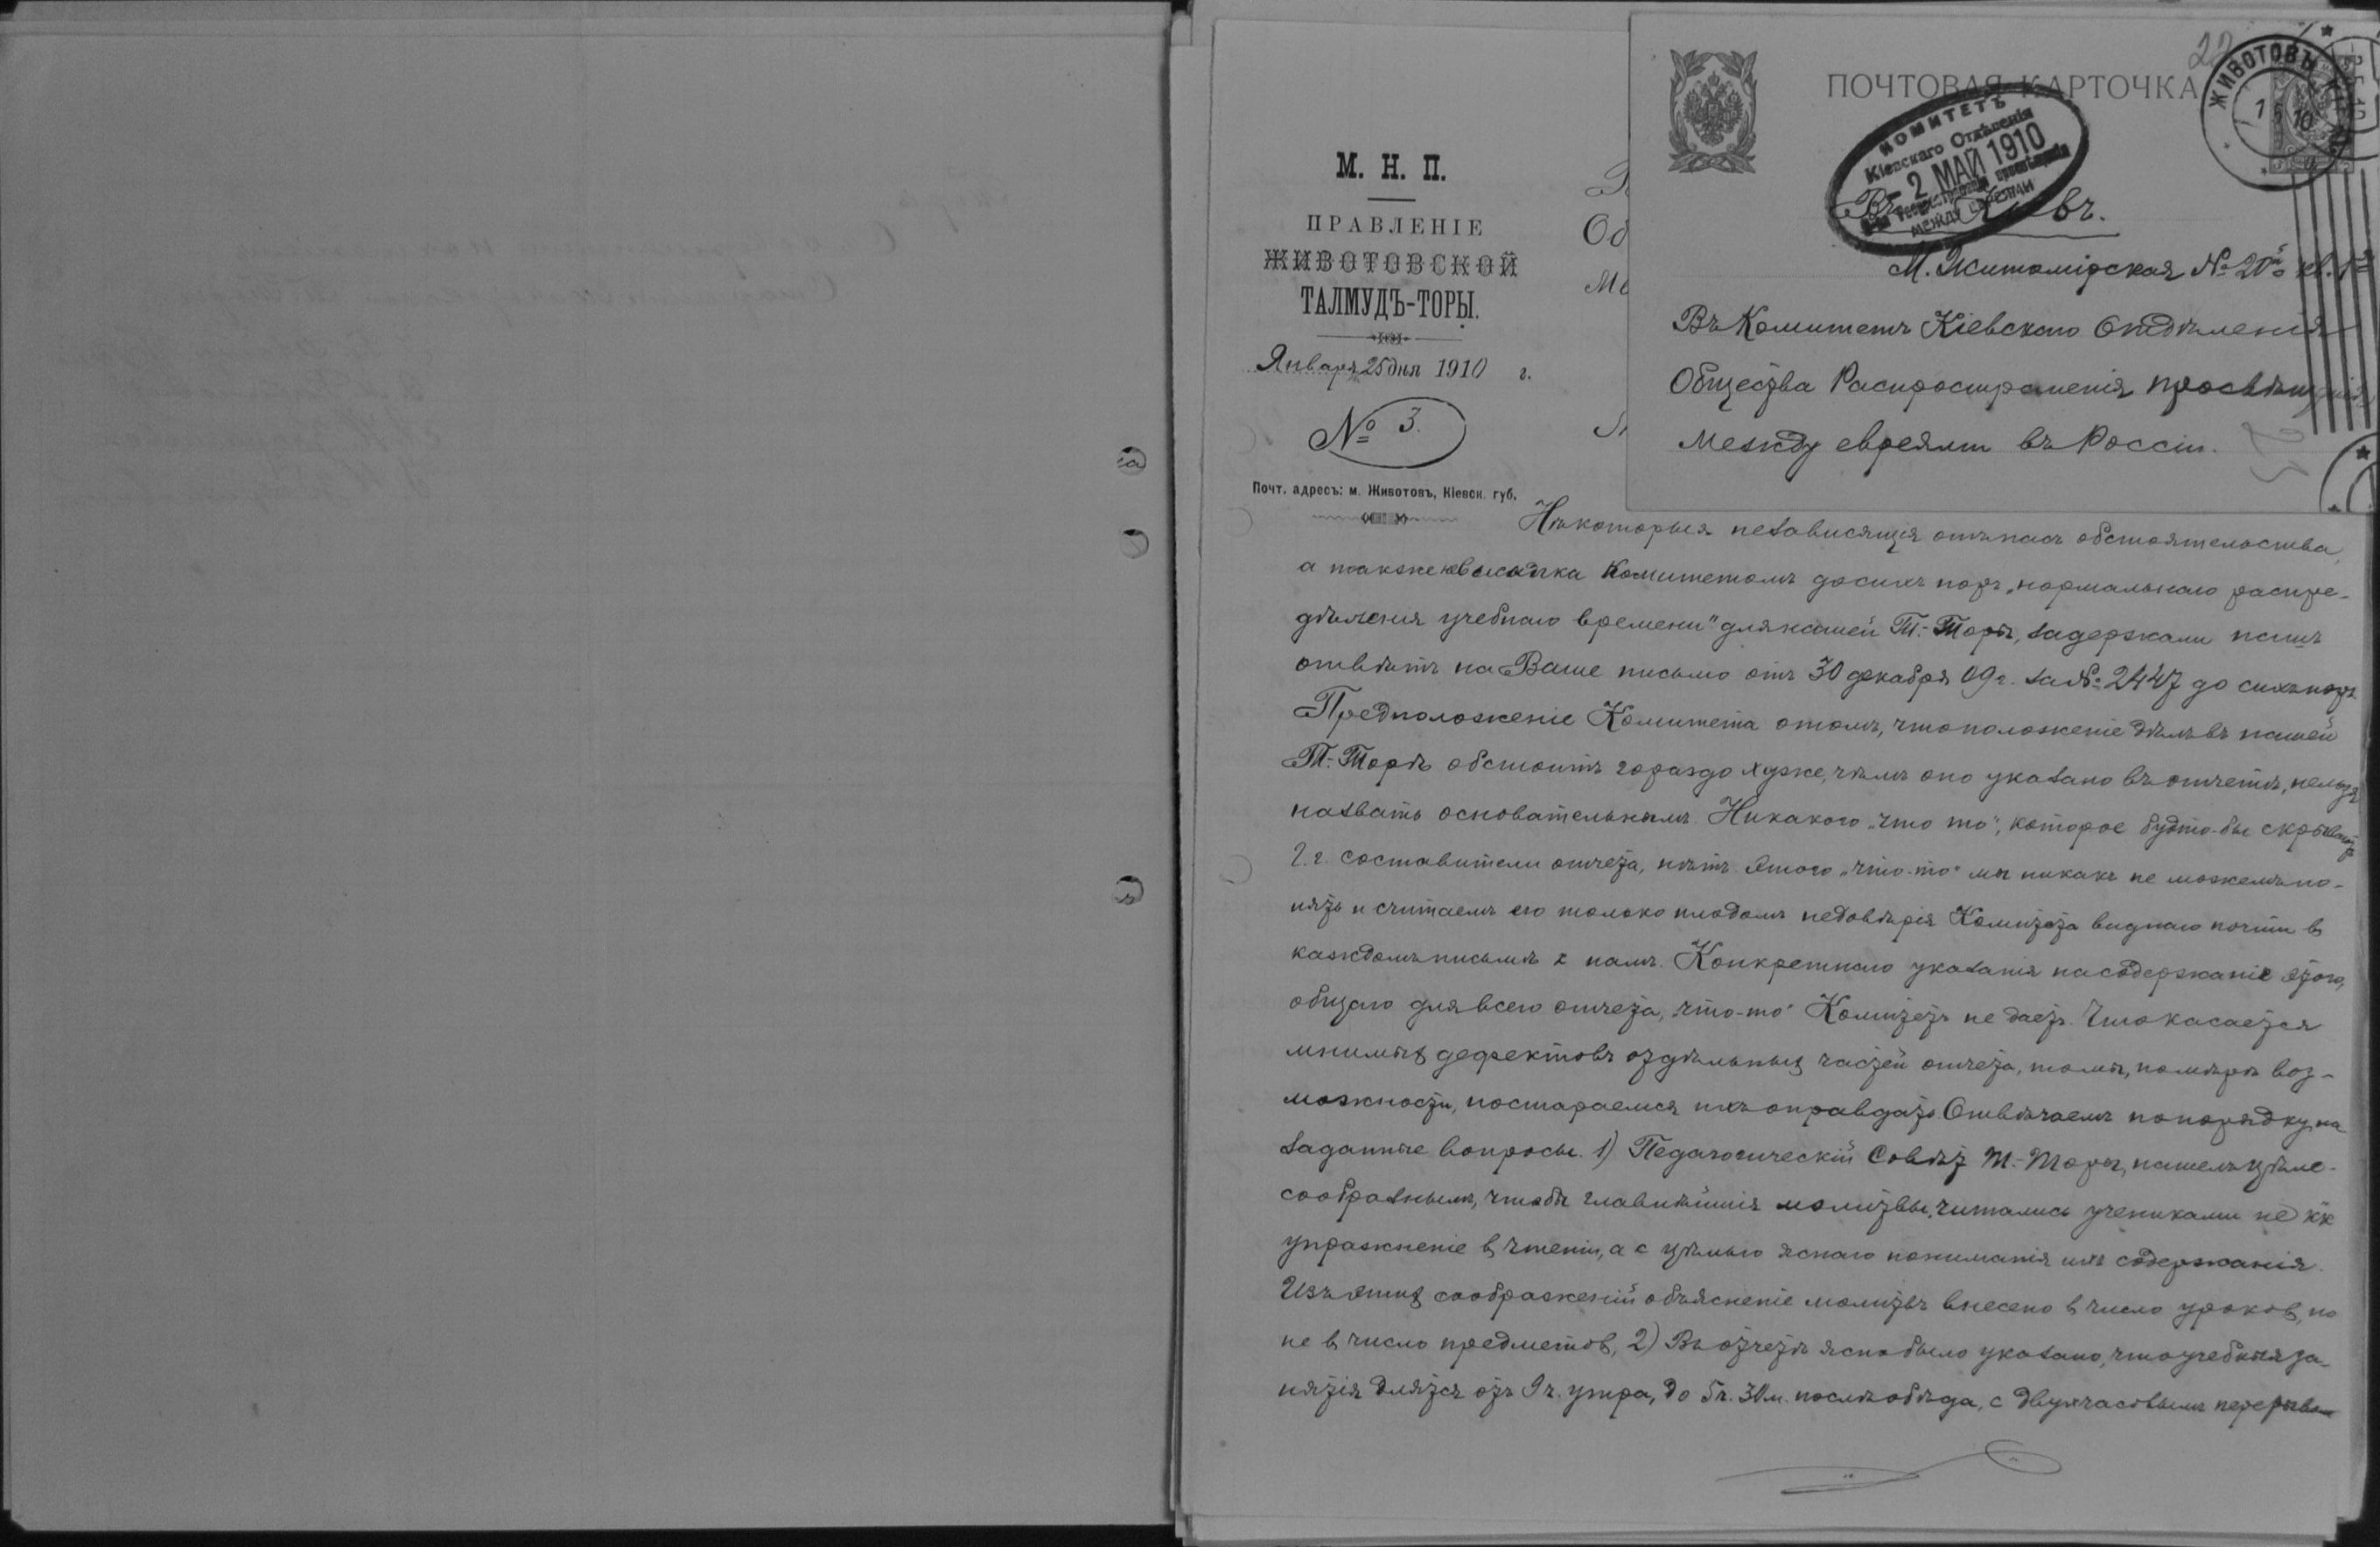 22
ПОЧТОВАЯ КАРТОЧКА
ЖИВОТОВЪ
1 5 10
КОМИТЕТЪ
Кіевскаго Отдѣленія
- 2 МАЙ 1910
МЕЖДУ ЕВРЕЯМИ
М. Житомірская № 20й кв. 1
Въ Комитетъ Кіевскаго Отдѣленія
Общества Распространенія просвѣщенія
между евреями въ Россіи.
М. Н. П.
ПРАВЛЕНІЕ
ЖИВОТОВСКОЙ
ТАЛМУДЪ-ТОРЫ.
Января 25 дня 1910 г.
№ 3.
Почт. адресъ: м. Животовъ, Кіевск. губ.
Нѣкоторыя независящія отъ насъ обстоятельства,
а также невысылка Комитетомъ до сихъ поръ „нормальнаго распре-
дѣленія учебнаго времени" для нашей Т.-Торы, задержали нашъ
отвѣтъ на Ваше письмо отъ 30 декабря 09 г. за № 2447 до сихъ поръ
Предположеніе Комитета о томъ, что положеніе дѣлъ въ нашей
Т.-Торѣ обстоитъ гораздо хуже, чѣмъ оно указано въ отчетѣ, нельзя
назвать основательнымъ. Никакого „что то", которое будто-бы скрываютъ
г.г. составители отчета, нѣтъ. Этого „что-то" мы никакъ не можемъ по-
нять и считаемъ его только плодомъ недовѣрія Комитета виднаго почти в
каждомъ письмѣ к намъ. Конкретнаго указанія на содержаніе этого,
общаго для всего отчета, „что-то" Комитетъ не даетъ. Что касается
мнимых дефектовъ отдѣльных частей отчета, то мы, по мѣрѣ воз-
можности, постараемся ихъ оправдать. Отвѣчаемъ по порядку на
заданные вопросы. 1) Педагогическій Совѣт Т.-Торы, нашелъ цѣле-
сообразнымъ, чтобы главнѣйшія молитвы, читались учениками не кк
упражненіе в чтеніи, а с цѣлью яснаго пониманія ихъ содержанія.
Изъ этих соображеній объясненіе молитвъ внесено в число уроков, но
не в число предметов, 2) Въ отчетѣ ясно было указано, что учебныя за-
нятія длятся отъ 9 ч. утра, до 5 ч. 30 м. послѣ обѣда, с двухчасовымъ перерывом